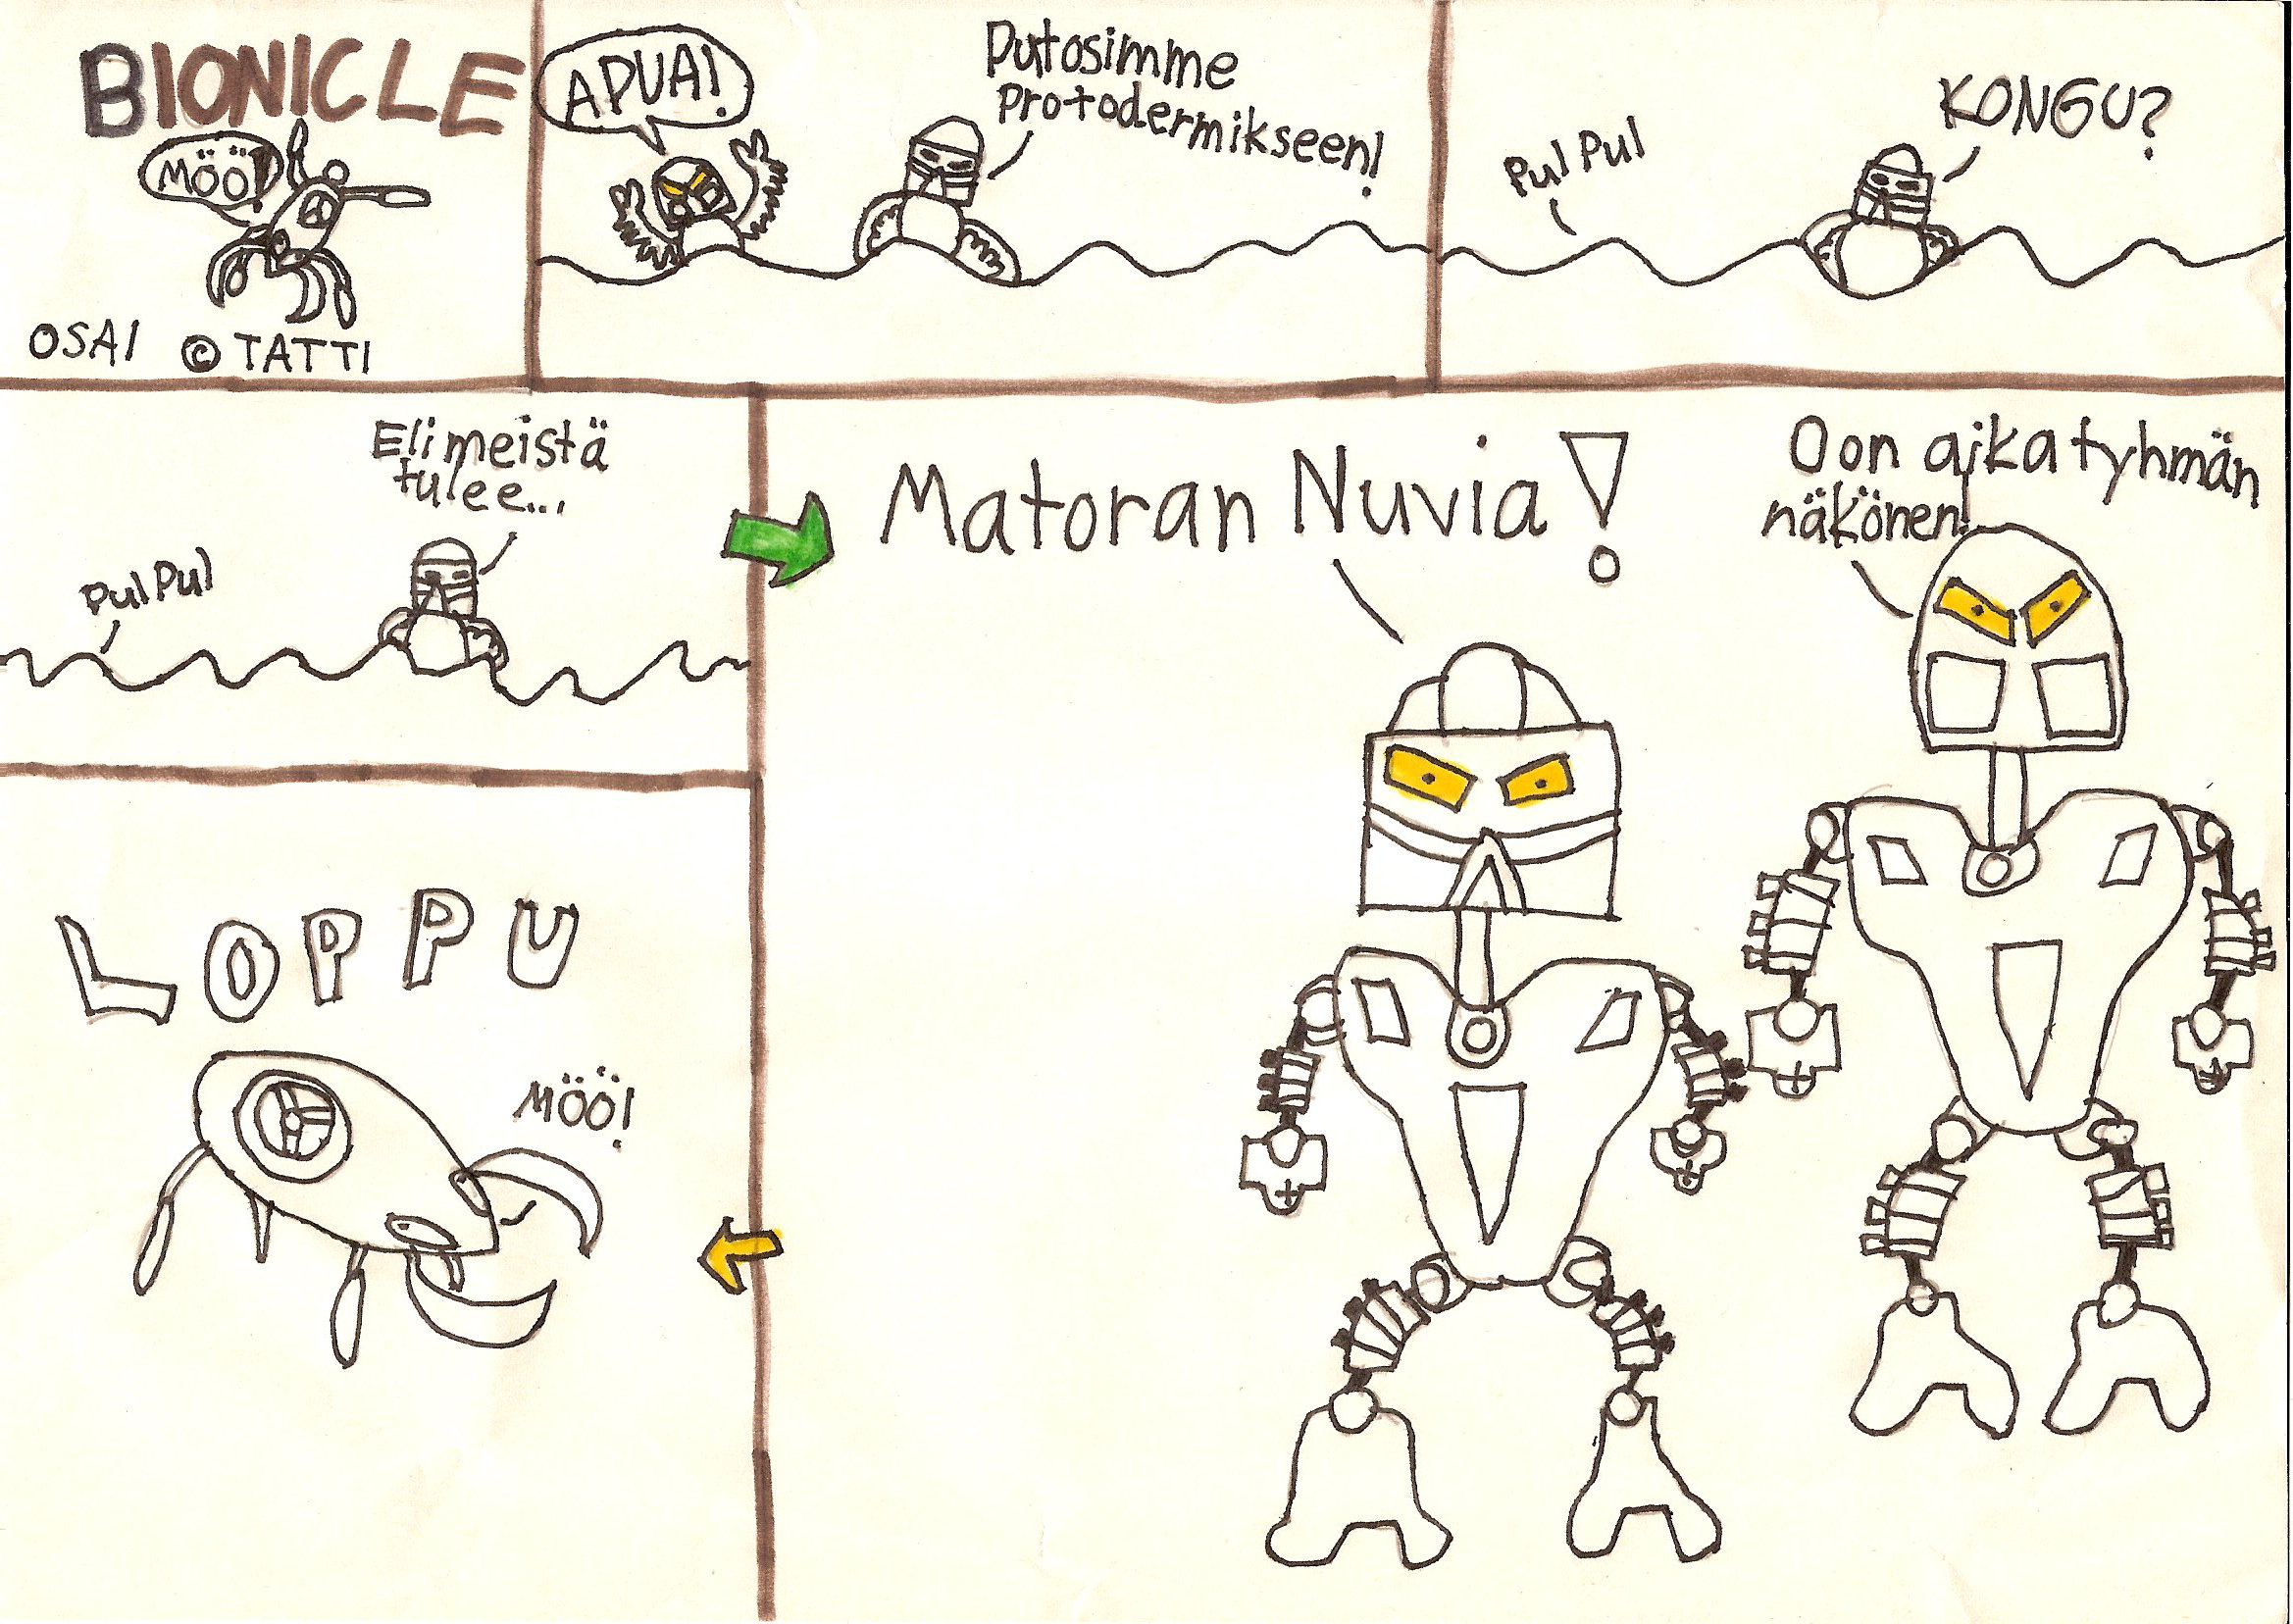 BIONICLE
MÖÖ!
OSA 1 © TATTI
APUA!
Putosimme
protodermikseen!
Pul Pul
KONGU?
Eli meistä
tulee...
Pul Pul
Matoran Nuvia!
Oon aika tyhmän
näkönen!
LOPPU
MÖÖ!